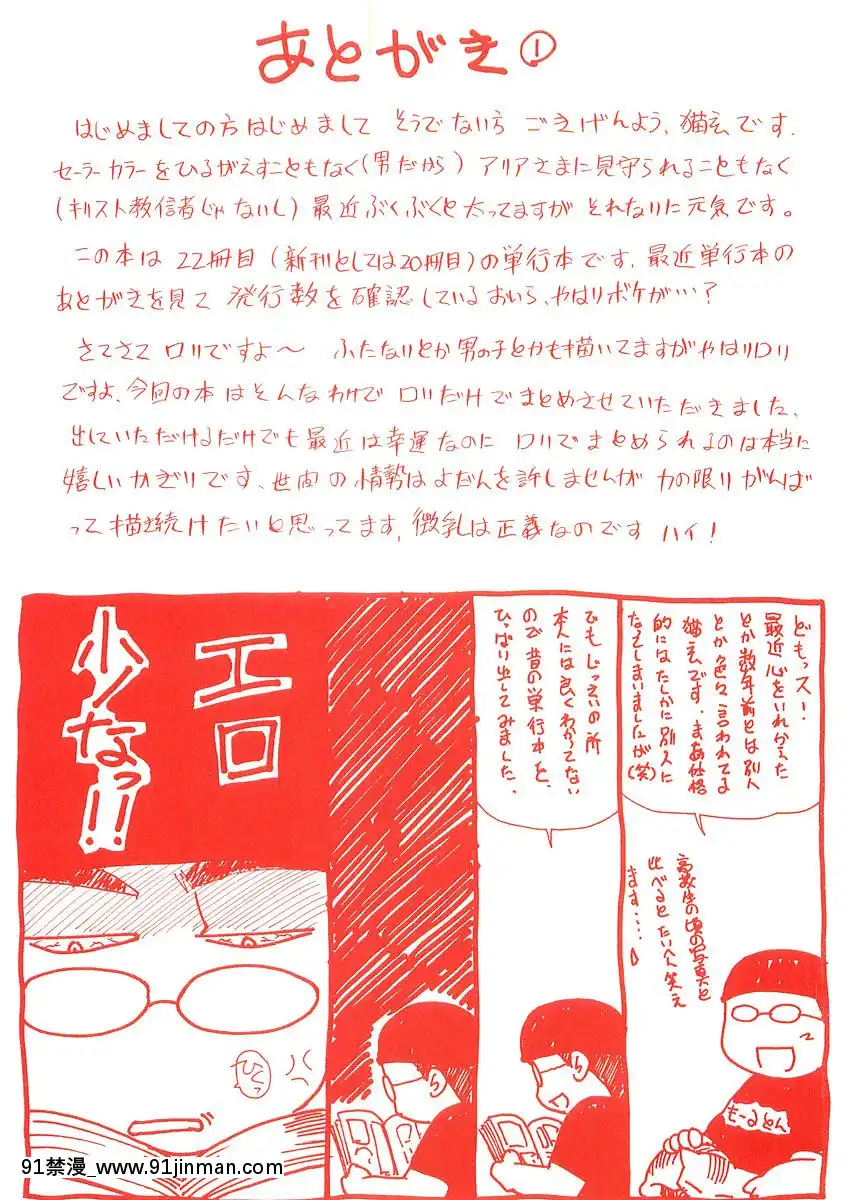 あとがき①
はじめましての方はじめまして そうでない方 ごきげんよう、猫玄です.
セーラーカラーをひるがえすこともなく(男だから) アリアさまに見守られることもなく
(キリスト教信者じゃないし) 最近ぶくぶくと太ってますが それなりに元気です。
この本は 22冊目 (新刊としては20冊目)の単行本です. 最近単行本の
あとがきを見て 発行数を確認しているおいら、やはりボケが…?
さてさて ロリですよ〜 ふたなりとか男の子とかも描いてますがやはりロリ
ですよ、今回の本はそんなわけで ロリだけでまとめさせていただきました、
出していただけるだけでも最近は幸運なのに ロリでまとめられるのは本当に
嬉しいかぎりです、世間の情勢はよだんを許しませんが 力の限りがんば
って描き続けたいと思ってます, 微乳は正義なのです ハイ!
どもっス!
最近心をいれかえた
とか数年前とは別人
とか色々言われてる
猫玄です. まあ性格
的にはたしかに別人に
なってしまいましたが(笑)
高校生の頃の写真と
比べると たいへん笑え
ます…
もーるとん
でもじっさいの所
本人には良くわかってない
ので昔の単行本を、
ひっぱり出してみました、
エロ
少なっ!!
ひくっ
91禁漫_www.91jinman.com